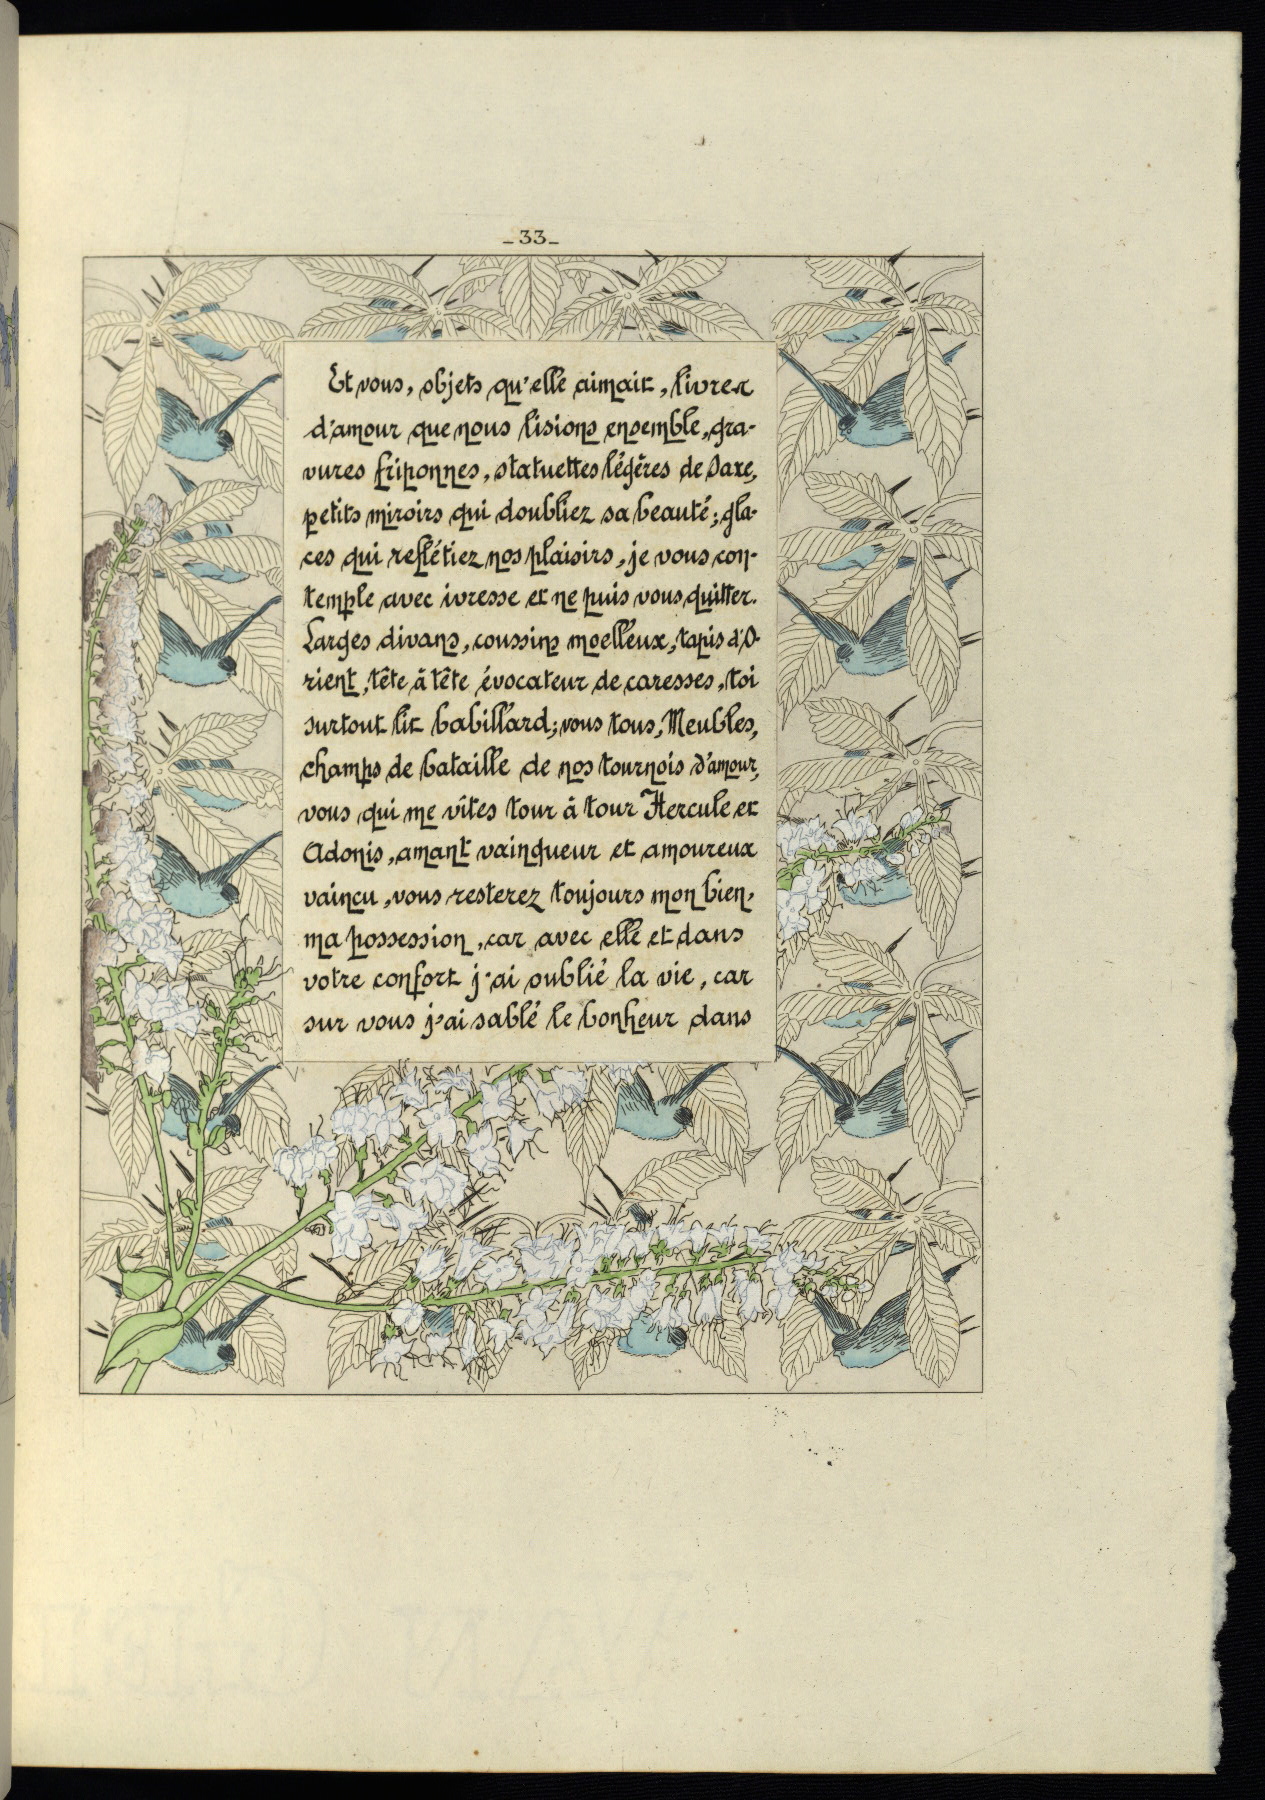 _33_
Et vous, objets qu'elle aimait, livres
d'amour que nous lisions ensemble, gra-
vures friponnes, statuettes légères de Saxe,
petits miroirs qui doubliez sa beauté; gla-
ces qui reflétiez nos plaisirs, je vous con-
temple avec ivresse et ne puis vous quitter.
Larges divans, coussins moelleux, tapis d'O-
rient, tête à tête évocateur de caresses, toi
surtout lit babillard; vous tous, Meubles,
champs de bataille de nos tournois d'amour,
vous qui me vîtes tour à tour Hercule et
Adonis, amant vainqueur et amoureux
vaincu, vous resterez toujours mon bien,
ma possession, car avec elle et dans
votre confort j'ai oublié la vie, car
sur vous j'ai sablé le bonheur dans